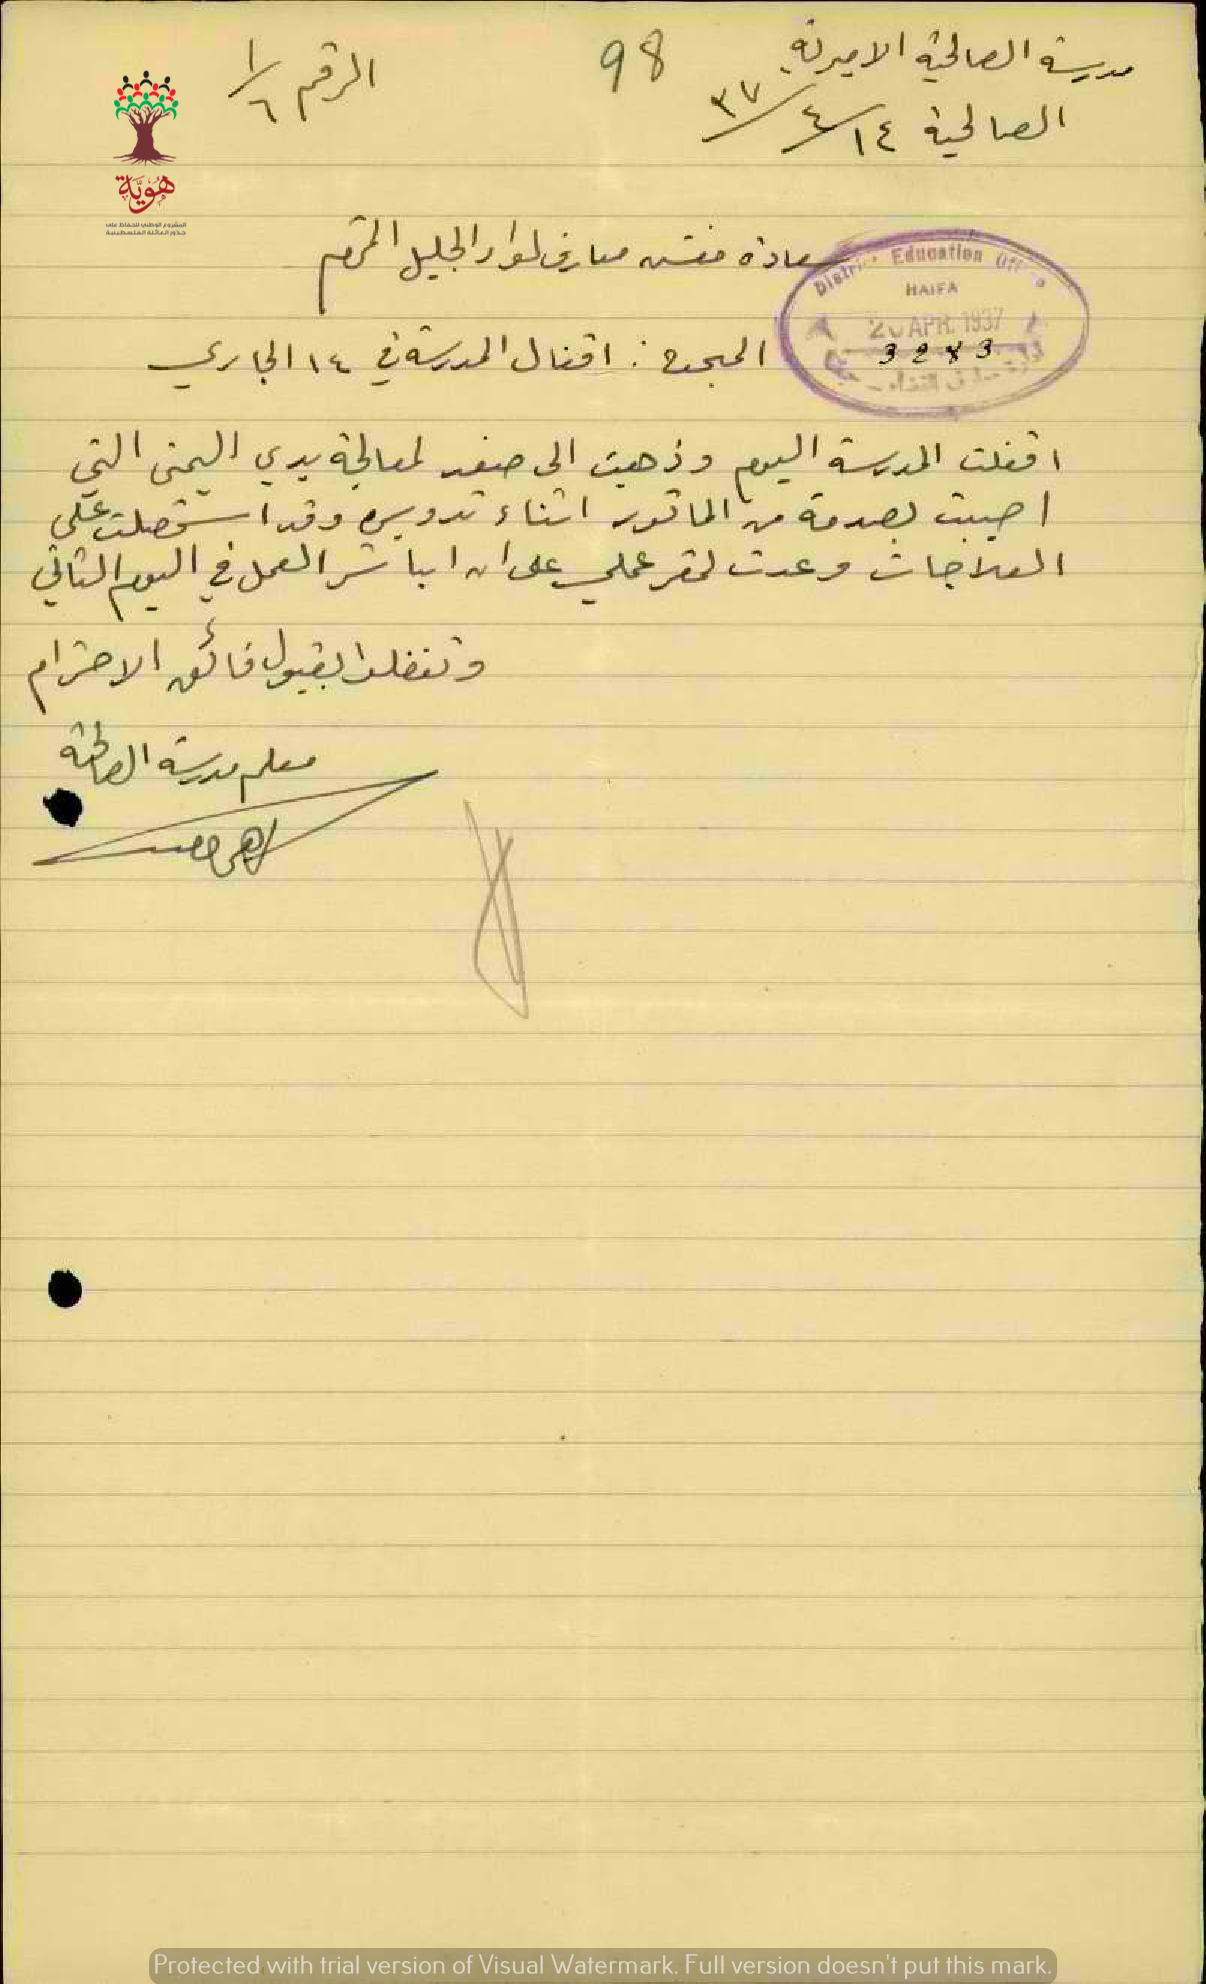 مدرسة الصالحية الاميرية
98
الرقم ١/٦
الصالحية ١٤/٤/٣٧
هوية
المشروع الوطني للحفاظ على
جذور العائلة الفلسطينية
سعادة مفتش معارف لواء الجليل المحترم
District Education Office
HAIFA
20 APR. 1937
3243
المبحوث : اقفال المدرسة في ١٤ الجاري
اقفلت المدرسة اليوم وذهبت الى صفد لمعالجة يدي اليمنى التي
اصيبت بصدمة من الماتور اثناء تدويره وقد استحصلت على
العلاجات وعدت لمقر عملي على ان اباشر العمل في اليوم الثاني
وتفضلوا بقبول فائق الاحترام
معلم مدرسة الصالحية
Protected with trial version of Visual Watermark. Full version doesn't put this mark.